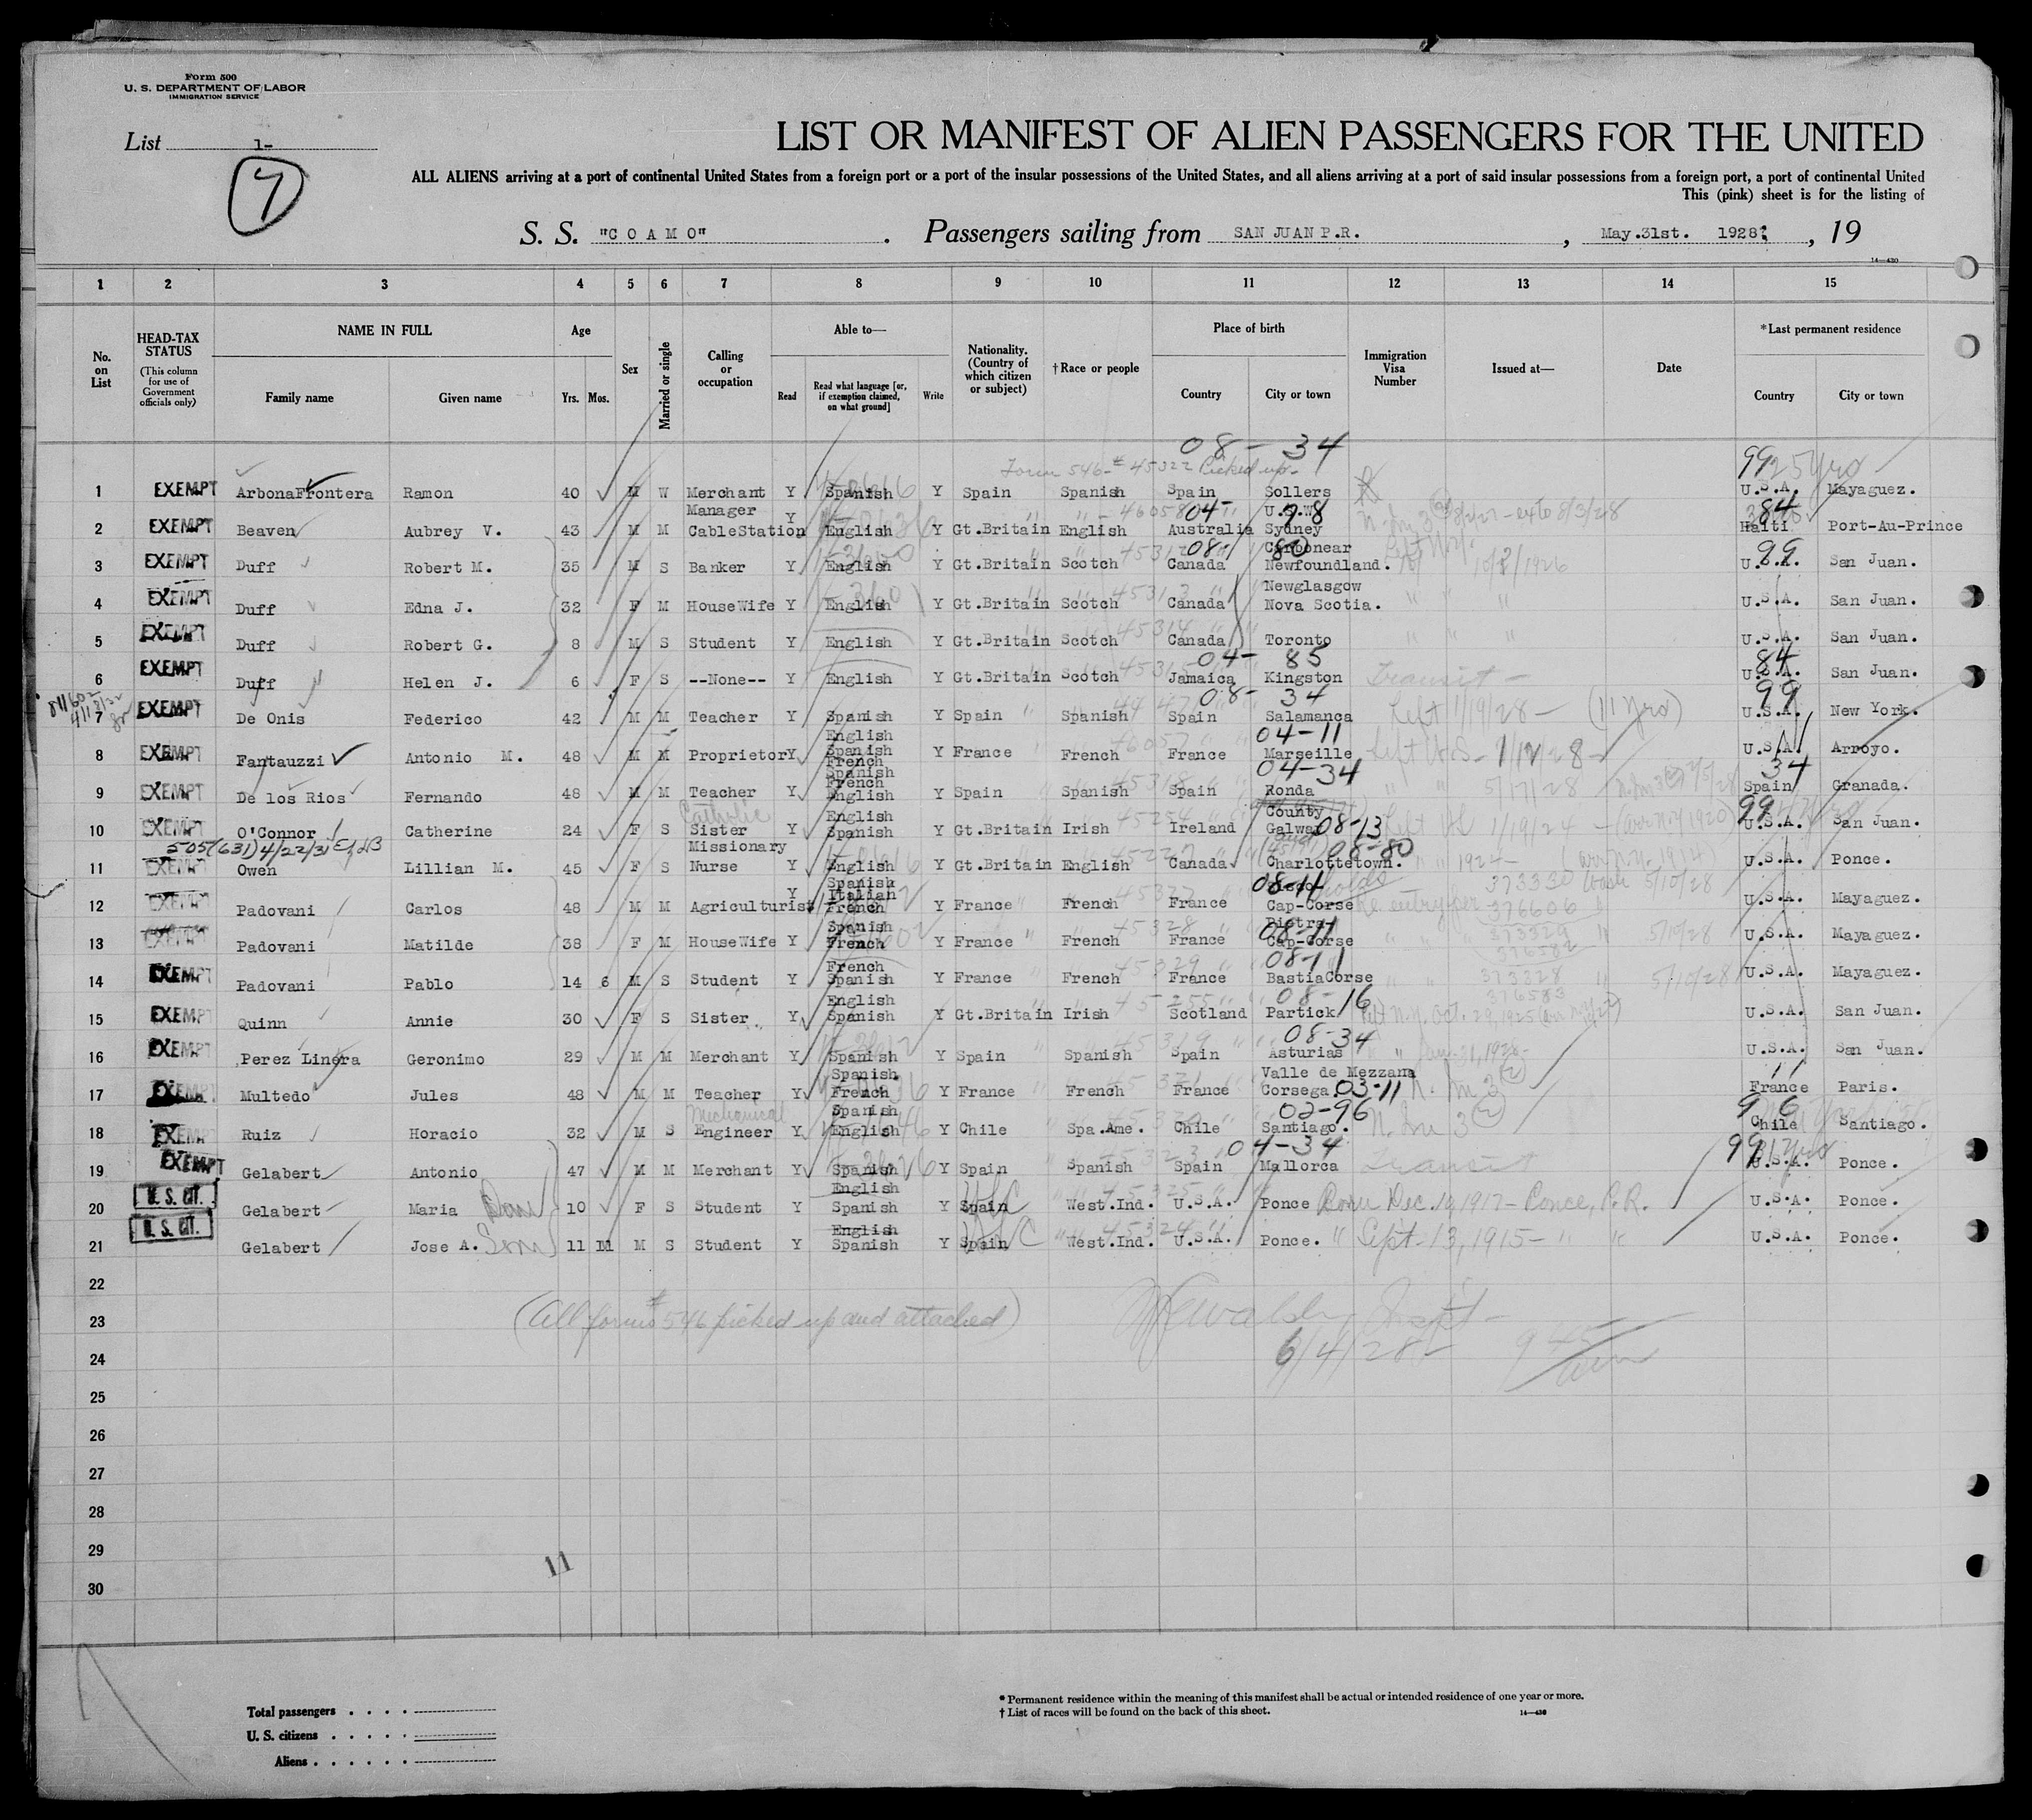 Form 500
U. S. DEPARTMENT OF LABOR
IMMIGRATION SERVICE
List 1-
7
LIST OR MANIFEST OF ALIEN PASSENGERS FOR THE UNITED
ALL ALIENS arriving at a port of continental United States from a foreign port or a port of the insular possessions of the United States, and all aliens arriving at a port of said insular possessions from a foreign port, a port of continental United
This (pink) sheet is for the listing of
S. S. "C O A M O" . Passengers sailing from SAN JUAN P.R. , May.31st. 1928: , 19
14—430
1 2 3 4 5 6 7 8 9 10 11 12 13 14 15
No. on List
HEAD-TAX STATUS
(This column for use of Government officials only)
NAME IN FULL
Family name Given name
Age
Yrs. Mos.
Sex
Married or single
Calling or occupation
Able to—
Read
Read what language [or, if exemption claimed, on what ground]
Write
Nationality. (Country of which citizen or subject)
† Race or people
Place of birth
Country City or town
Immigration Visa Number
Issued at—
Date
*Last permanent residence
Country City or town
08 - 34
Form 546-# 45322 Picked up- 99 25 yrs
1 EXEMPT ArbonaFrontera Ramon 40 M W Merchant Y Spanish Y Spain Spanish Spain Sollers U.S.A. Mayaguez.
Manager 46058 04- 78 U.S.W. 84
2 EXEMPT Beaven Aubrey V. 43 M M CableStation Y English Y Gt.Britain English Australia Sydney Haiti Port-Au-Prince
45312 08- 80 Carbonear 99
3 EXEMPT Duff Robert M. 35 M S Banker Y English Y Gt.Britain Scotch Canada Newfoundland. 10/2/1926 U.S.A. San Juan.
45313 Newglasgow
4 EXEMPT Duff Edna J. 32 F M HouseWife Y English Y Gt.Britain Scotch Canada Nova Scotia. " " " U.S.A. San Juan.
45314
5 EXEMPT Duff Robert G. 8 M S Student Y English Y Gt.Britain Scotch Canada Toronto " " " U.S.A. San Juan.
45315 04- 85 84
6 EXEMPT Duff Helen J. 6 F S --None-- Y English Y Gt.Britain Scotch Jamaica Kingston Transit - U.S.A. San Juan.
08- 34 99
7 EXEMPT De Onis Federico 42 M M Teacher Y Spanish Y Spain Spanish Spain Salamanca Left 1/19/28 - (11 yrs) U.S.A. New York.
English
Spanish 46057 04-11
8 EXEMPT Fantauzzi Antonio M. 48 M M Proprietor Y French Y France French France Marseille Left U.S. - 1/12/28 - U.S.A. Arroyo.
Spanish
French 45318 04-34 34
9 EXEMPT De los Rios Fernando 48 M M Teacher Y English Y Spain Spanish Spain Ronda " " 5/17/28 Spain Granada.
Catholic English 45254 County 99
10 EXEMPT O'Connor Catherine 24 F S Sister Y Spanish Y Gt.Britain Irish Ireland Galway 08-13 1/19/24 U.S.A. San Juan.
505(631) 4/22/31 Missionary 08-80
11 EXEMPT Owen Lillian M. 45 F S Nurse Y English Y Gt.Britain English Canada Charlottetown. 1924- U.S.A. Ponce.
Spanish
Italian 45327 08-11 373330 5/10/28
12 EXEMPT Padovani Carlos 48 M M Agriculturist Y French Y France French France Cap-Corse 376606 U.S.A. Mayaguez.
Spanish 45328 Pietra 08-11
13 EXEMPT Padovani Matilde 38 F M HouseWife Y French Y France French France Cap-Corse 373329 5/10/28 U.S.A. Mayaguez.
French 45329 08-11 376582
14 EXEMPT Padovani Pablo 14 6 M S Student Y Spanish Y France French France BastiaCorse 373328 5/10/28 U.S.A. Mayaguez.
English 45255 08-16 376583
15 EXEMPT Quinn Annie 30 F S Sister Y Spanish Y Gt.Britain Irish Scotland Partick Left N.Y. Oct. 29, 1925 U.S.A. San Juan.
45319 08-34
16 EXEMPT Perez Linera Geronimo 29 M M Merchant Y Spanish Y Spain Spanish Spain Asturias U.S.A. San Juan.
Spanish Valle de Mezzana
17 EXEMPT Multedo Jules 48 M M Teacher Y French Y France French France Corsega. 03-11 France Paris.
Mechanical Spanish 02-96 96
18 EXEMPT Ruiz Horacio 32 M S Engineer Y English Y Chile Spa.Ame. Chile Santiago. Chile Santiago.
45323 04-34 99
19 EXEMPT Gelabert Antonio 47 M M Merchant Y Spanish Y Spain Spanish Spain Mallorca Transit U.S.A. Ponce.
English 45325
20 U.S. CIT. Gelabert Maria 10 F S Student Y Spanish Y Spain West.Ind. U.S.A. Ponce Born Dec. 19, 1917 - Ponce, P.R. U.S.A. Ponce.
English 45324
21 U.S. CIT. Gelabert Jose A. Son 11 11 M S Student Y Spanish Y Spain West.Ind. U.S.A. Ponce. " Sept. 13, 1915 - " " U.S.A. Ponce.
22
23 (All forms # 546 picked up and attached)
24 6/4/28
25
26
27
28
29
11
30
Total passengers
U. S. citizens
Aliens
* Permanent residence within the meaning of this manifest shall be actual or intended residence of one year or more.
† List of races will be found on the back of this sheet.
14—430